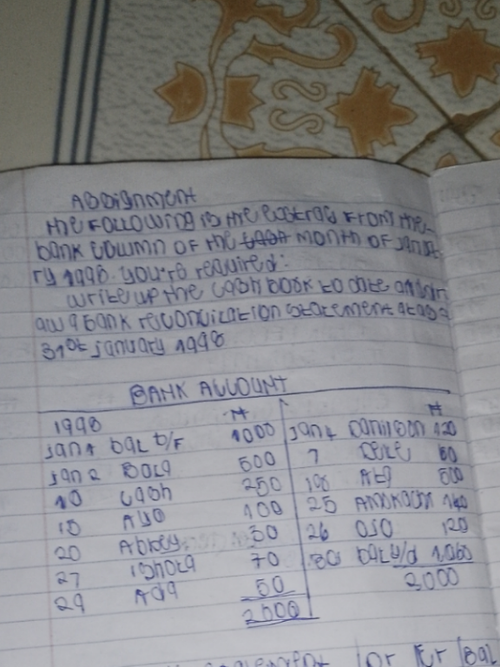 Assignment
the following is the extract from the
bank column of the month of Janua
ry 1998. you're required:
write up the cash book to date and dr
aw a bank reconciliation statement as at
31st January 1998
BANK ACCOUNT
1998 ₦ ₦
Jan 1 bal b/f 1000 Jan 4 120
Jan 2 Bola 500 7 60
10 cash 250 500
18 Ayo 100 25 140
20 30 26 OSO 120
27 Ishola 70 bal c/d 1060
29 Ada 50 2000
2000